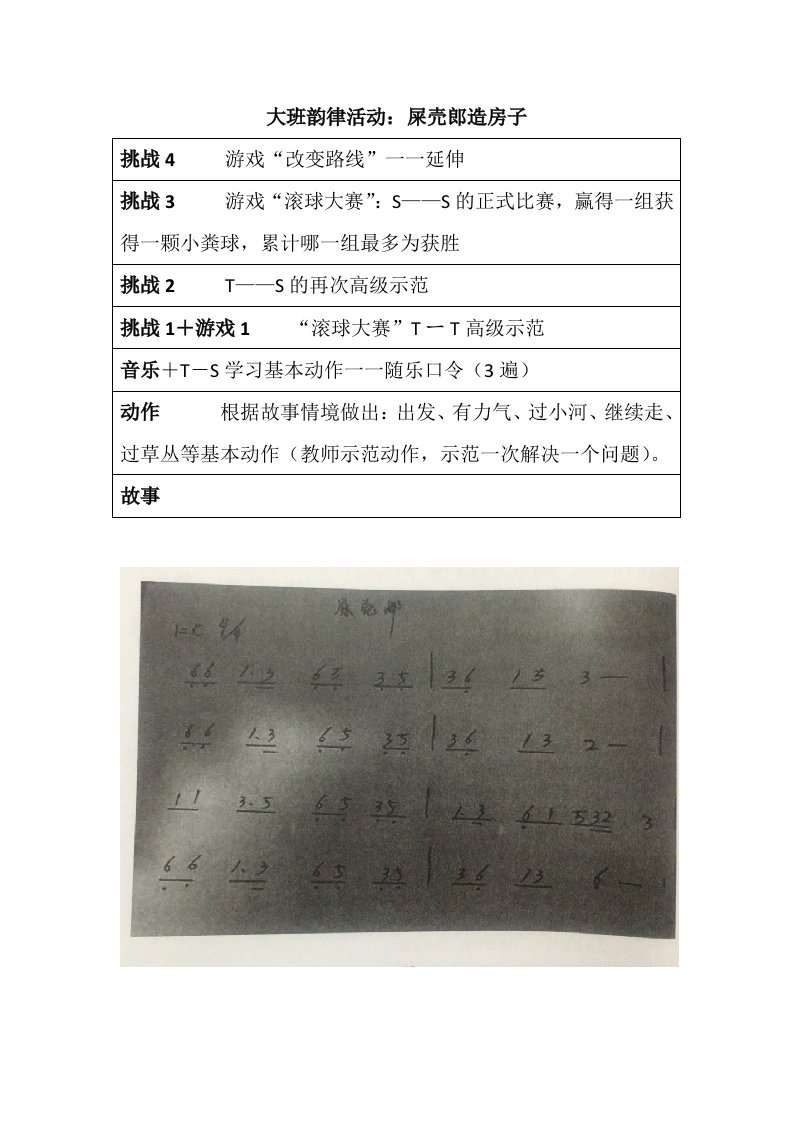 大班韵律活动：屎壳郎造房子
挑战 4 游戏“改变路线”一一延伸
挑战 3 游戏“滚球大赛”：S——S 的正式比赛，赢得一组获
得一颗小粪球，累计哪一组最多为获胜
挑战 2 T——S 的再次高级示范
挑战 1＋游戏 1 “滚球大赛”T 一 T 高级示范
音乐＋T－S 学习基本动作一一随乐口令（3 遍）
动作 根据故事情境做出：出发、有力气、过小河、继续走、
过草丛等基本动作（教师示范动作，示范一次解决一个问题）。
故事
屎壳郎
1=C 4/4
66 1.3 65 35 | 36 13 3 — |
66 1.3 65 35 | 36 13 2 — |
11 3.5 65 35 | 13 61 532 3
66 1.3 65 35 | 36 13 6 —